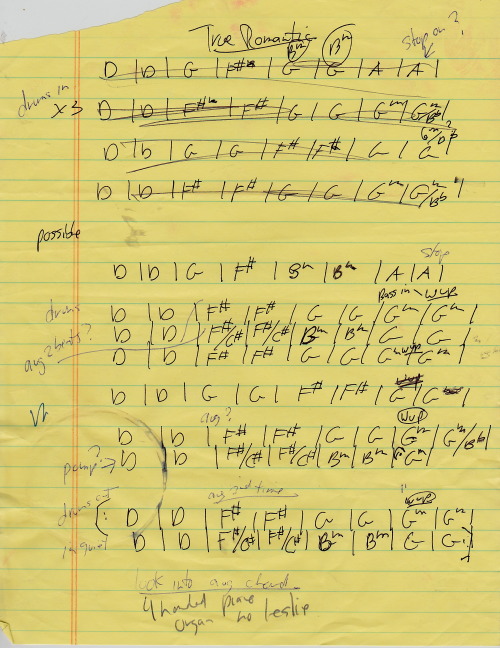 True Romantic
Bm Bm stop on ?
D | D | G | F# | G | G | A | A |
drums in
x3 D | D | F# | F# | G | G | Gm | Gm/Bb |
Gm/D ?
D | D | G | G | F# | F# | G | G
D | D | F# | F# | G | G | Gm | Gm/Bb
possible
stop
D | D | G | F# | Bm | Bm | A | A |
Bass in - wup
drums D | D | F# | F# | G | G | Gm | Gm |
aug 2 beats? D | D | F#/C# | F#/C# | Bm | Bm | G | G
D | D | F# | F# | G | G | Gm wup | Gm |
D | D | G | G | F# | F# | G | G
aug? wup
D | D | F# | F# | G | G | Gm | Gm/Bb |
pump? → D | D | F#/C# | F#/C# | Bm | Bm | Gm |
drums out aug 2nd time wup
D | D | F# | F# | G | G | Gm | Gm |
D | D | F#/C# | F#/C# | Bm | Bm | G | G
look into aug chord
4 handed piano
organ no leslie